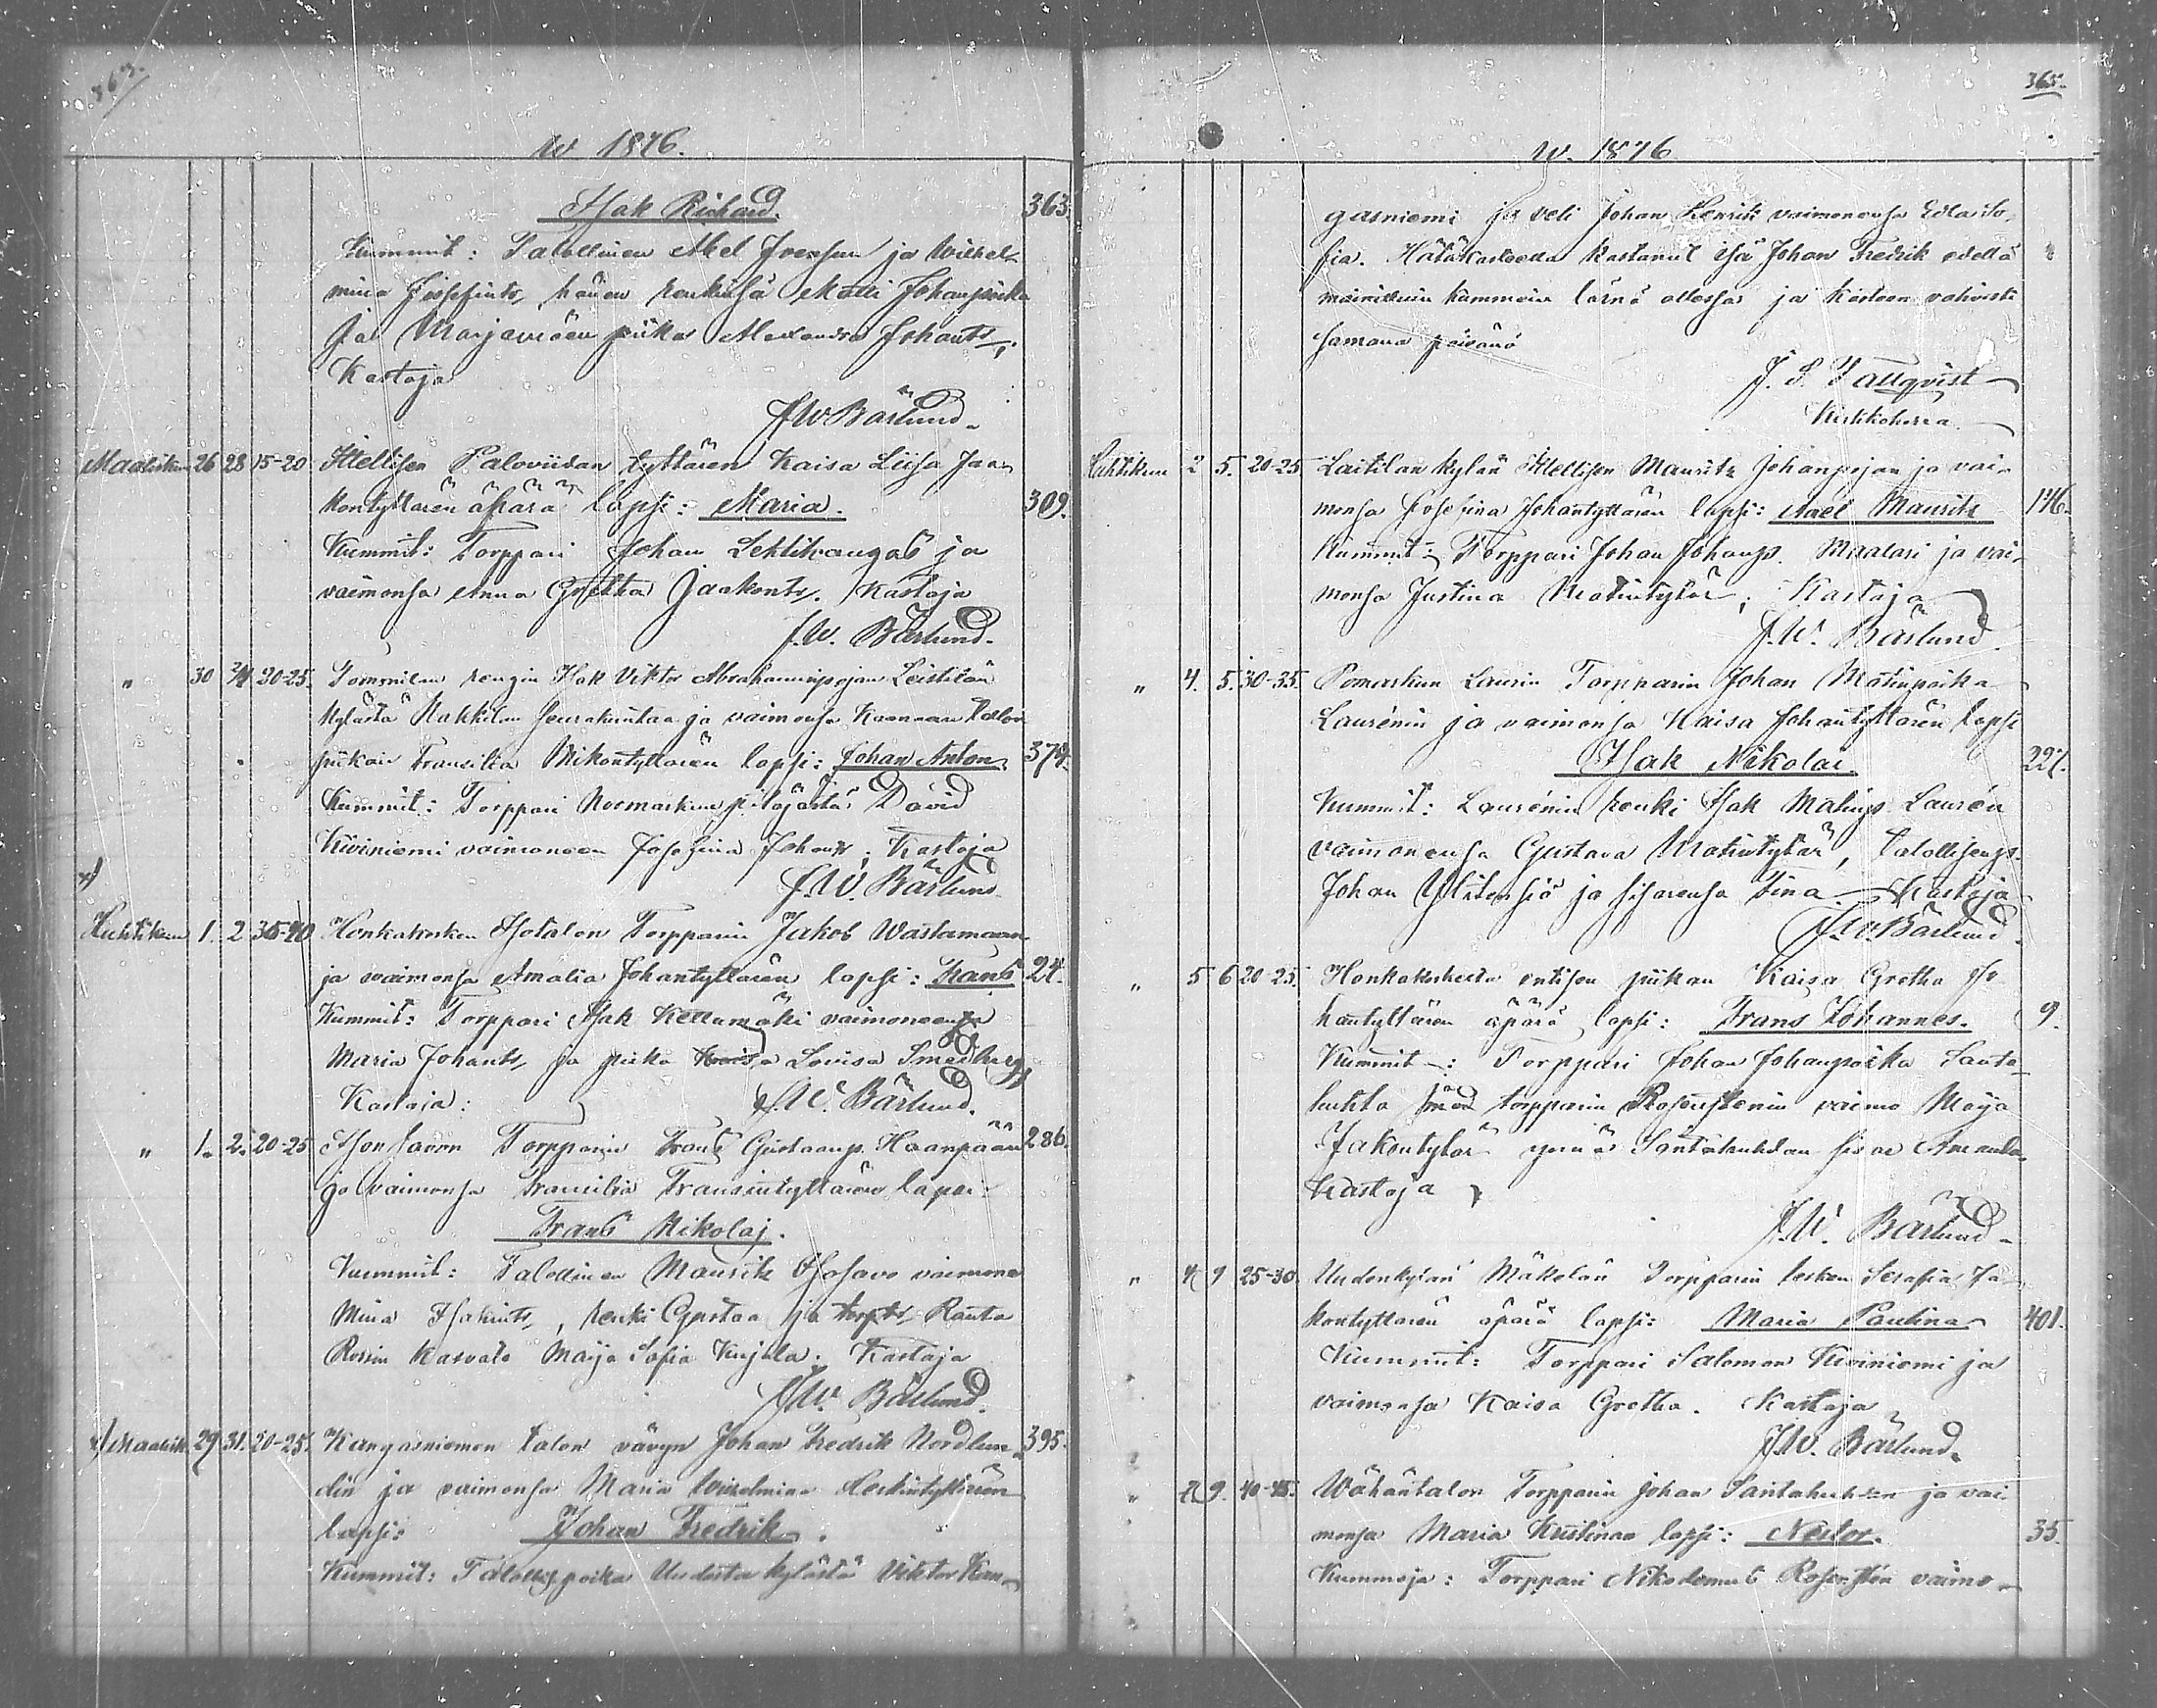 363.
w 1876.
Isak Richard. 363.
Kummit: Talollinen Abel Iversen ja Wilhel-
mina Josefints, hänen renkinsä Matti Johanpoika
ja Marjamäen piika Alexandra Johants,
Kastaja
J W Bärlund.
Maalisku 26 28 15-20 Itellisen Paloviidan tyttären Kaisa Liisa Jaa-
kontyttären äpärä lapsi: Maria. 309.
Kummit: Torppari Johan Lehtikangas ja
vaimonsa Anna Gretha Jaakonts. Kastaja
J. W. Bärlund.
" 30 2/4 20-25. Tommilan rengin Isak Viktor Abrahaminpojan Leistilän
kylästä Nakkilan seurakuntaa ja vaimonsa talon
piikan Fransilia Mikontyttären lapsi: Johan Anton. 374.
Kummit: Torppari Noormarkun pitäjästä David
Kiviniemi vaimoneen Josefina Johants; Kastaja
x) J. W. Bärlund
Huhtikuu 1. 2 35-40 Honkakosken Isotalon Torpparin Jakob Wastamaan
ja vaimonsa Amalia Johantyttären lapsi: Frans 24.
Kummit: Torppari Isak Kellumäki vaimoneensa
Maria Johants, ja piika Lovisa Smedberg
Kastaja: J. W. Bärlund.
" 1. 2. 20-25 Ison Torpparin Frans Gustaanp. Haanpään 286.
ja vaimonsa Fransilia Fransintyttären lapsi
Frans Nikolaj.
Kummit: Talollinen Maurits Isosavo vaimone
Mina Isakints, renki Gustaa ja Ranta
Rossin kasvato Maija Sofia Kujala. Kastaja
J. W. Bärlund.
x) Maalisk. 29 31. 20-25. Kangasniemen talon vävyn Johan Fredrik Nordlun- 395.
din ja vaimonsa Maria Wilhelmina Heikintyttären
lapsi: Johan Fredrik.
Kummit: Talollisp.poika Uudesta kylästä Viktor Kan-
365.
w. 1876
gasniemi ja veli Johan Henrik vaimonensa Edla So-
fia. Hätäkasteella kastanut isä Johan Fredrik edellä
mainittuin kummein läsnä ollessa ja kasteen vahvisti
samana päivänä
J. S. Tallqvist
Kirkkoherra.
Huhtikuu 2 5. 20-25 Laitilan kylän Itellisen Maurits Johanpojan ja vai-
monsa Josefina Johantyttären lapsi: Axel Maurits 146.
Kummit: Torppari Johan Johanp. Maalari ja vai-
monsa Justina Matintytär; Kastaja
J. W. Bärlund.
" 4. 5. 30-35. Pomarkun Laurin Torpparin Johan Matinpoika
Laurénin ja vaimonsa Kaisa Johantyttären lapsi
Isak Nikolai. 227.
Kummit: Laurénin renki Isak Matinp. Laurén
vaimonensa Gustava Matintytär, Talollisenp.
Johan Ylitensjö ja sisarensa Tina. Kastaja
J. W. Bärlund.
" 5 6 20-25. Honkakoskelta entisen piikan Kaisa Gretha Jo
hantyttären äpärä lapsi: Frans Johannes. 9.
Kummit: Torppari Johan Johanpoika Santa-
huhta torpparin Rosensténin vaimo Maija
Jakontytär ynnä Santahuhdan sisar Amanda.
Kastaja
J. W. Bärlund.
" 9 25-30. Uudenkylän Mäkelän Torpparin lesken Serafia Ja-
kontyttären äpärä lapsi: Maria Paulina 401.
Kummit: Torppari Salomon Kiviniemi ja
vaimonsa Kaisa Gretha. Kastaja
J. W. Bärlund.
" 9. 40-45. Wähäntalon Torpparin Johan Santahuhdan ja vai
monsa Maria Kristinan lapsi: Nestor. 35.
Kummeja: Torppari Nikodemus Rosenstén vaimo-